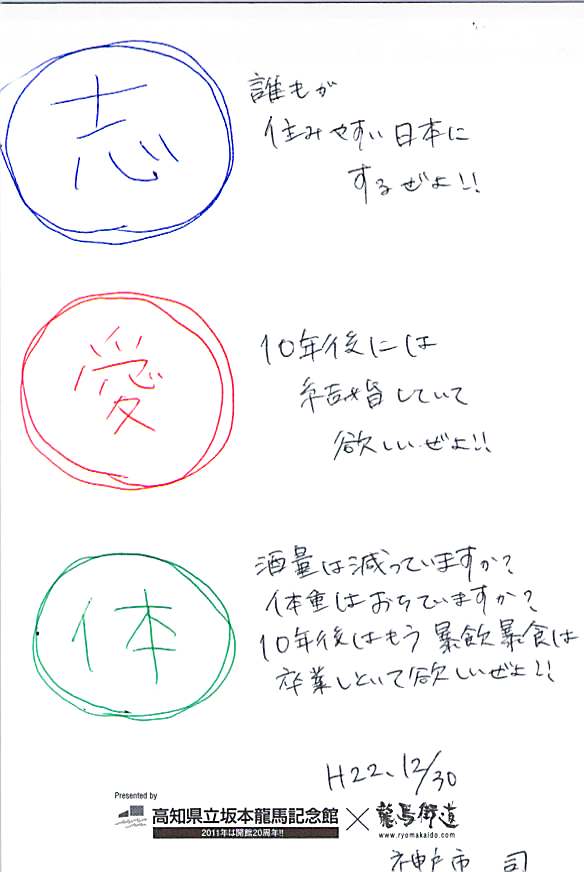 志
誰もが
住みやすい日本に
するぜよ!!
愛
10年後には
結婚していて
欲しいぜよ!!
体
酒量は減っていますか?
体重はおちていますか?
10年後はもう暴飲暴食は
卒業しといて欲しいぜよ!!
H22、12/30
Presented by
高知県立坂本龍馬記念館×龍馬街道
2011年は開館20周年!!
www.ryomakaido.com
神戸市 司